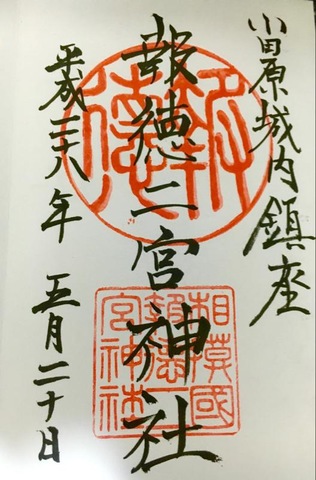 小田原城内鎮座
報徳二宮神社
平成二十八年 五月二十日
報徳
相模國
報徳二
宮神社